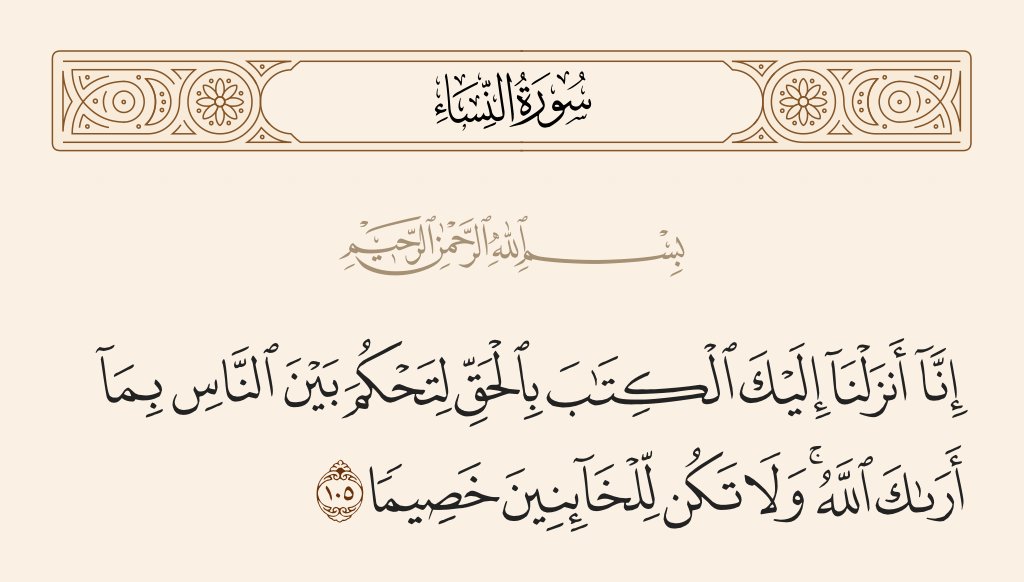 سُورَةُ النِّسَاءِ
بِسْمِ ٱللَّهِ ٱلرَّحْمَٰنِ ٱلرَّحِيمِ
إِنَّآ أَنزَلْنَآ إِلَيْكَ ٱلْكِتَٰبَ بِٱلْحَقِّ لِتَحْكُمَ بَيْنَ ٱلنَّاسِ بِمَآ
أَرَىٰكَ ٱللَّهُ ۚ وَلَا تَكُن لِّلْخَآئِنِينَ خَصِيمًا ١٠٥